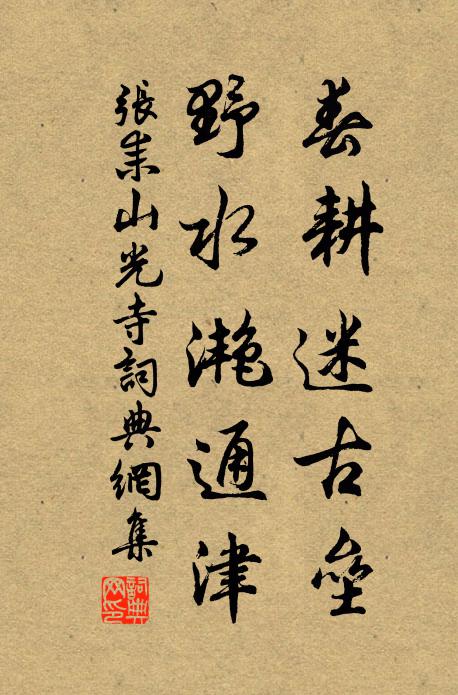 春耕迷古垒
野水滟通津
張耒山光寺詞典網集
詞典网印